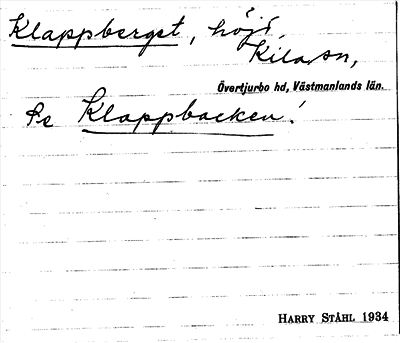 Klappberget, höjd,
Kila sn,
Övertjurbo hd, Västmanlands län.
Se Klappbacken!
HARRY STÅHL 1934